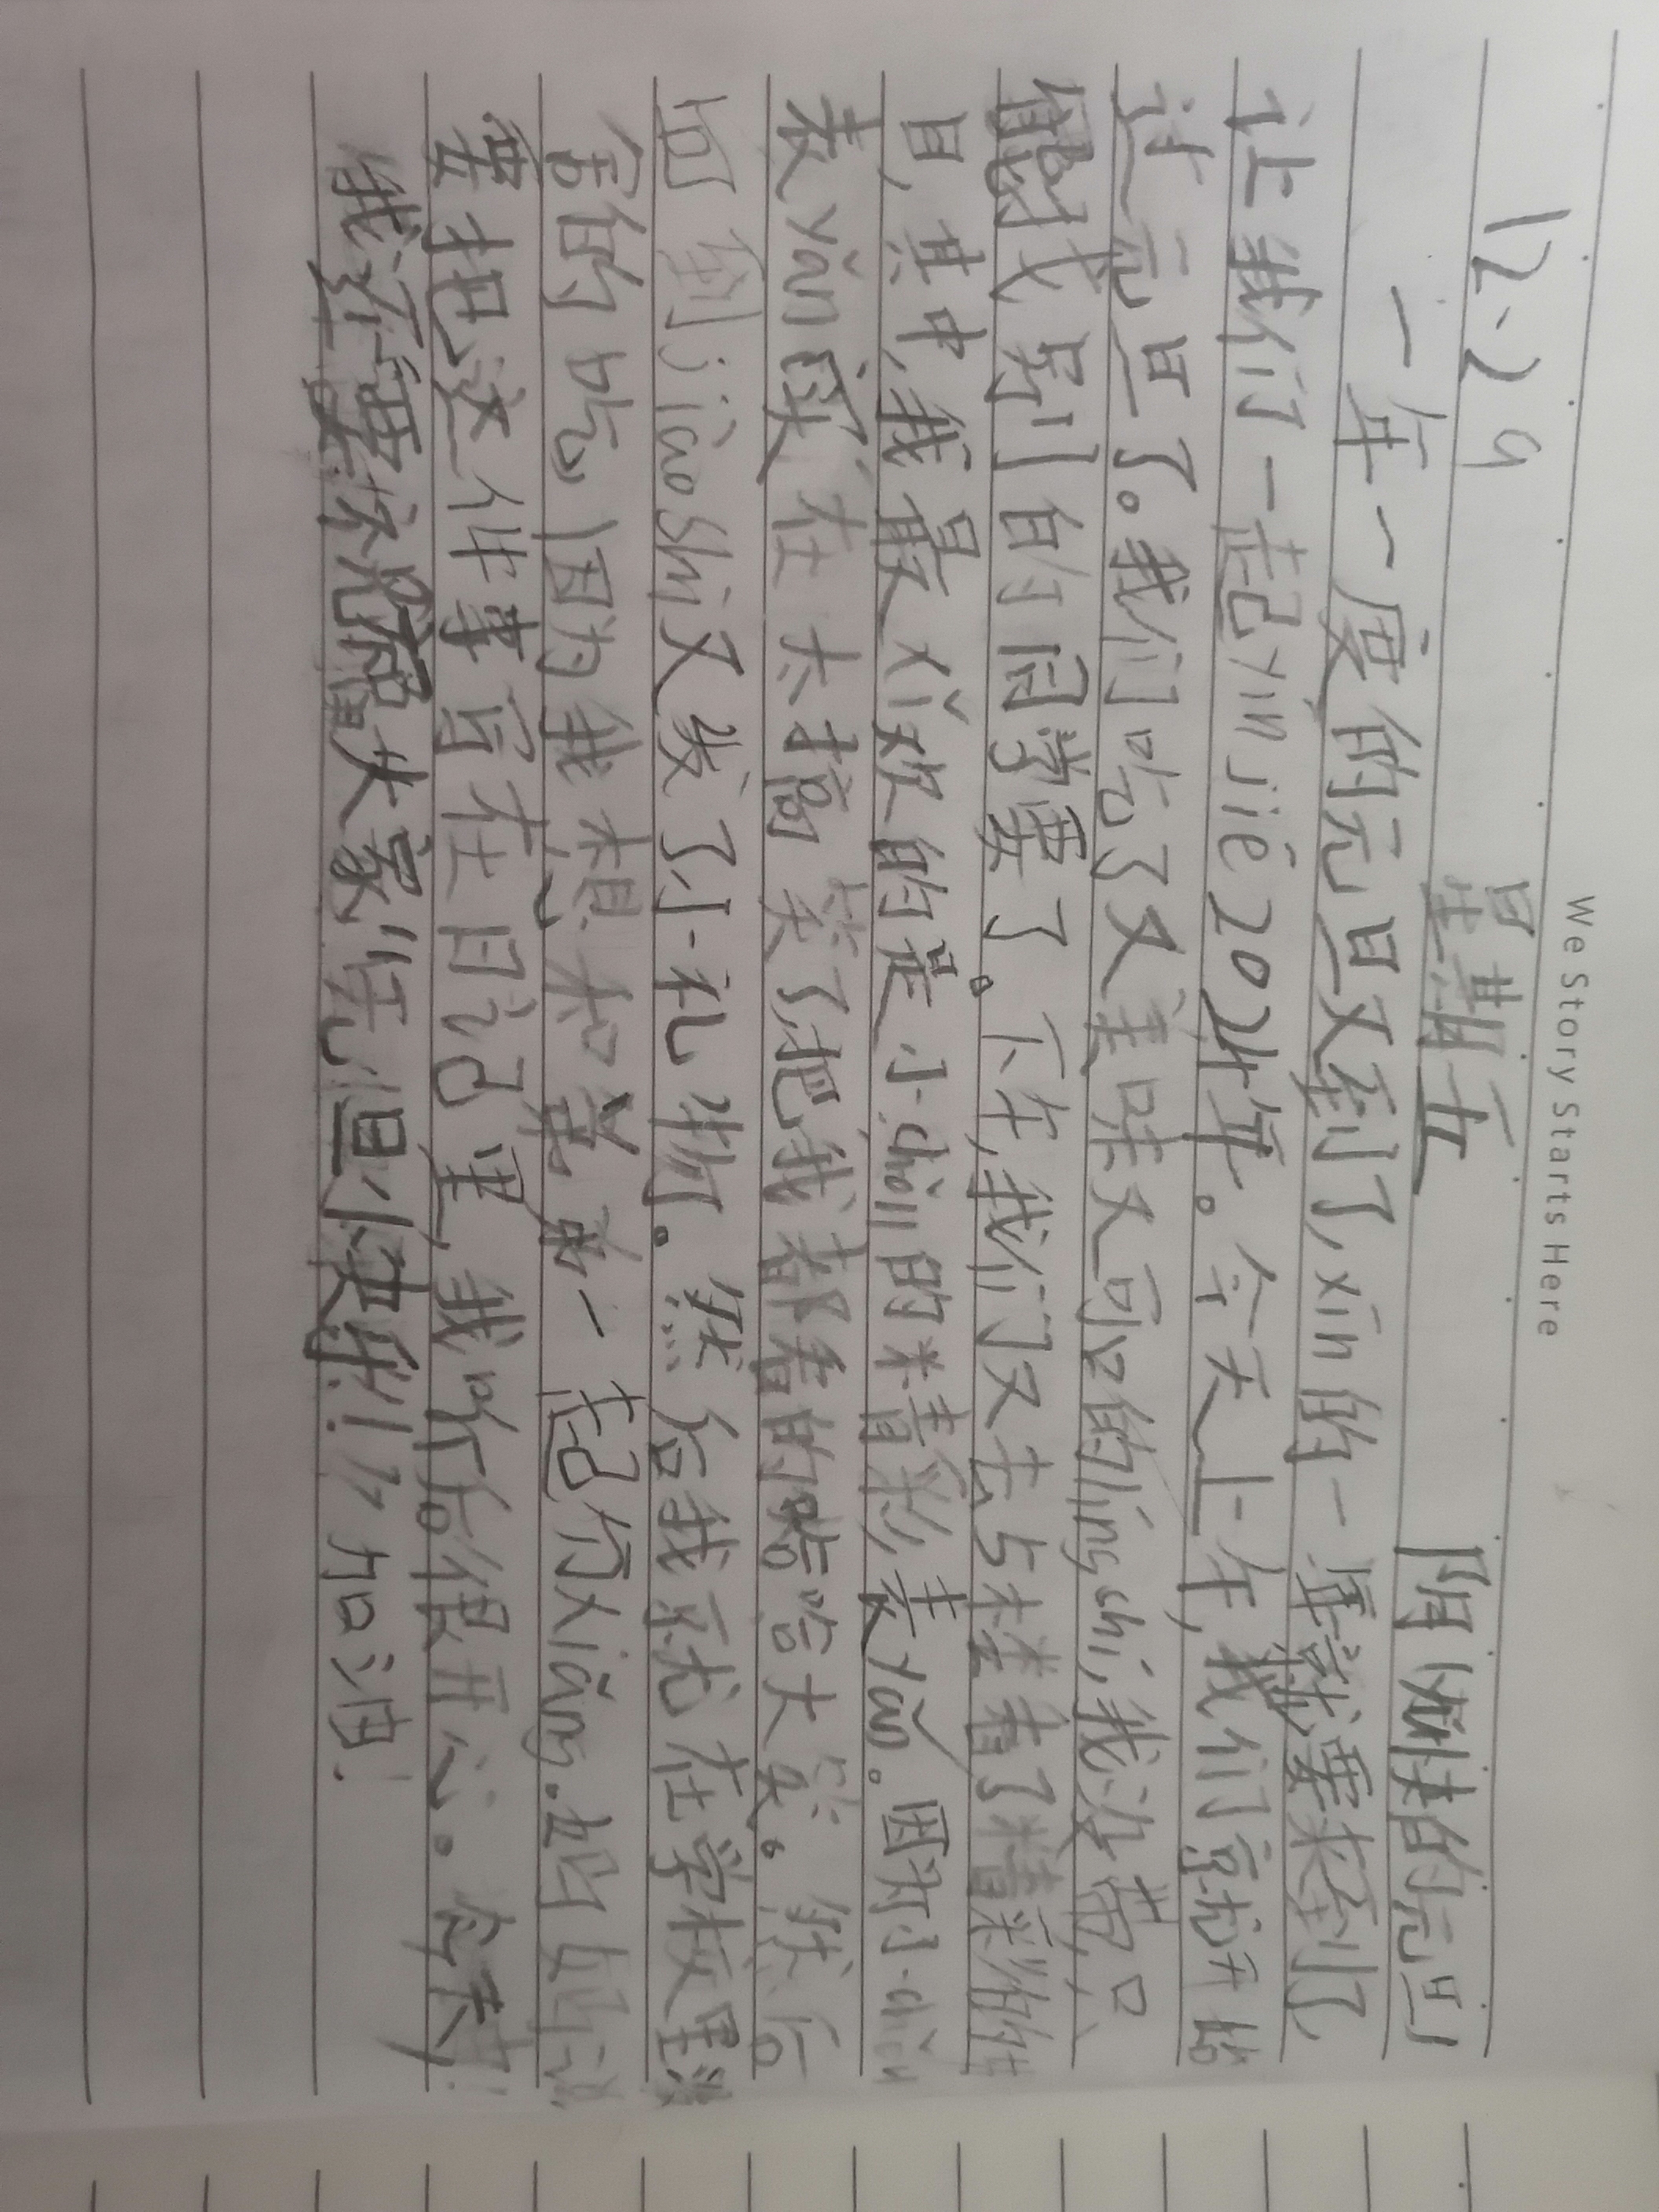 We Story Starts Here
12.29 星期五 阴
一年一度的元旦又到了,xīn的一年就要来到了,
让我们一起yíng jiē 2024年。今天上午,我们就开始
过元旦了。我们吃了又美味又可口的líng shí,我没带,只
能找别的同学要了。下午,我们又去大楼看了精彩的节
目,其中,我最xǐ欢的是小chǒu的精彩表yǎn。因为小chǒu
表yǎn实在太搞笑了,把我都看的哈哈大笑。然后
回到jiào shì又发了小礼物。然后我就在学校里没
舍的吃,因为我想和爸爸一起分xiǎng.妈妈说
要把这件事写在日记里,我听后很开心。今天
我还要祝福大家:“元旦快乐!”加油!